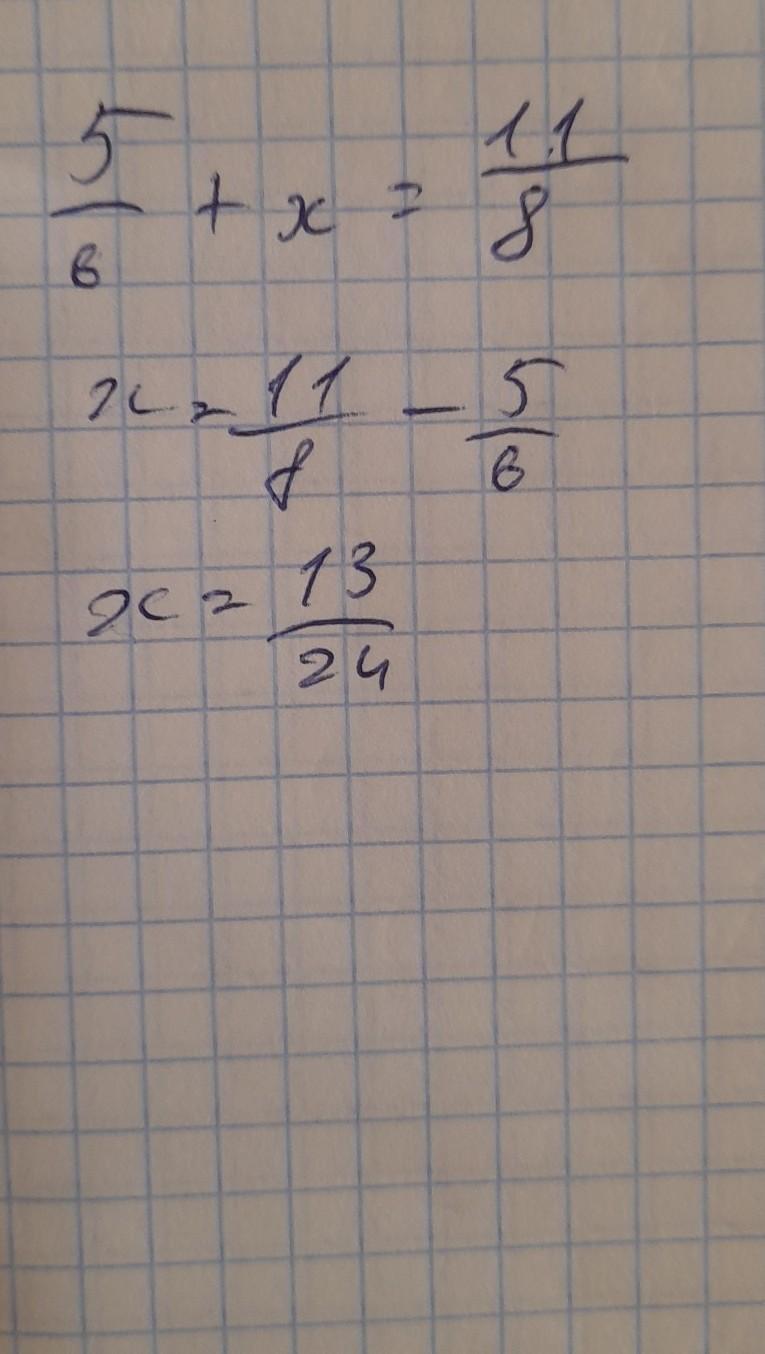 5/6 + x = 11/8
x = 11/8 - 5/6
x = 13/24